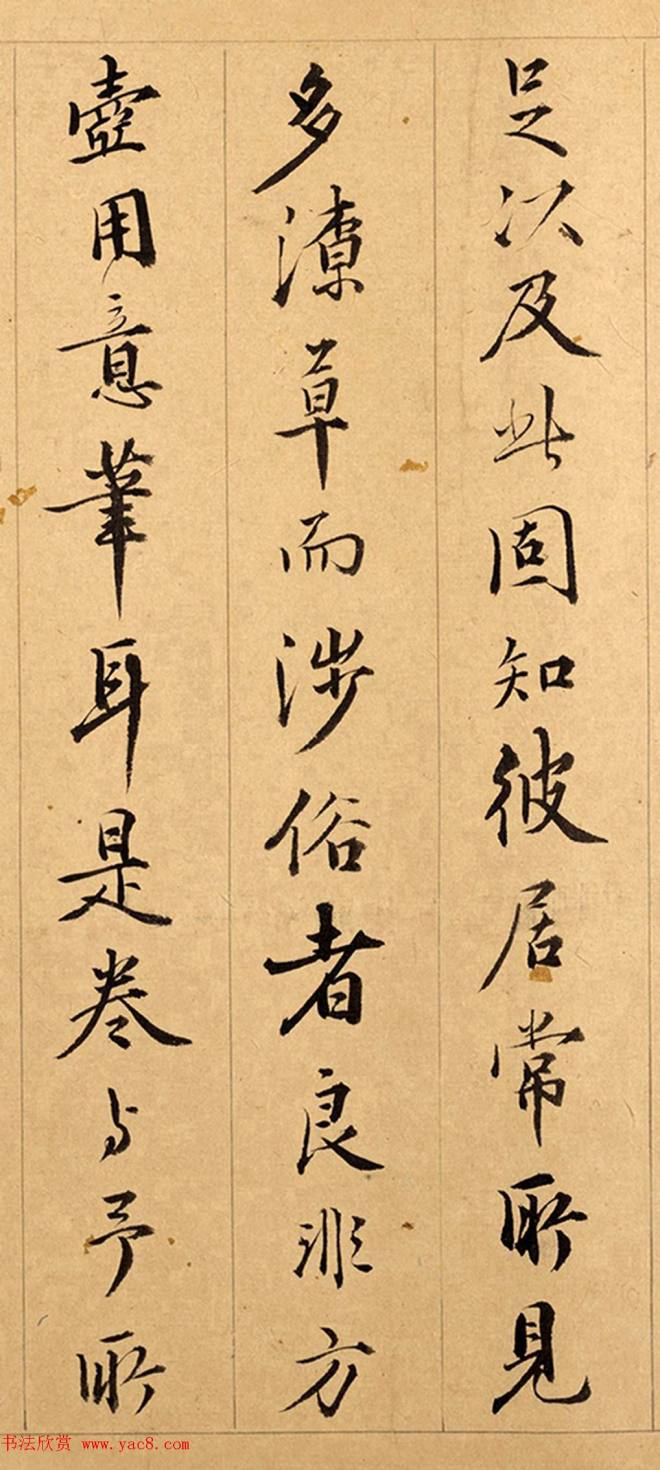 足以及此固知彼居常所見
多潦草而涉俗者良非方
壺用意筆耳是卷与予所
书法欣赏 www.yac8.com